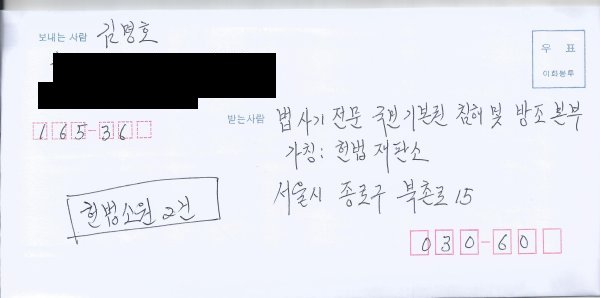 보내는 사람 김명호
165-36
우 표
이화봉투
받는사람 법사기 전문 국민기본권 침해 및 방조 본부
가칭: 헌법재판소
서울시 종로구 북촌로 15
030-60
헌법소원 2건